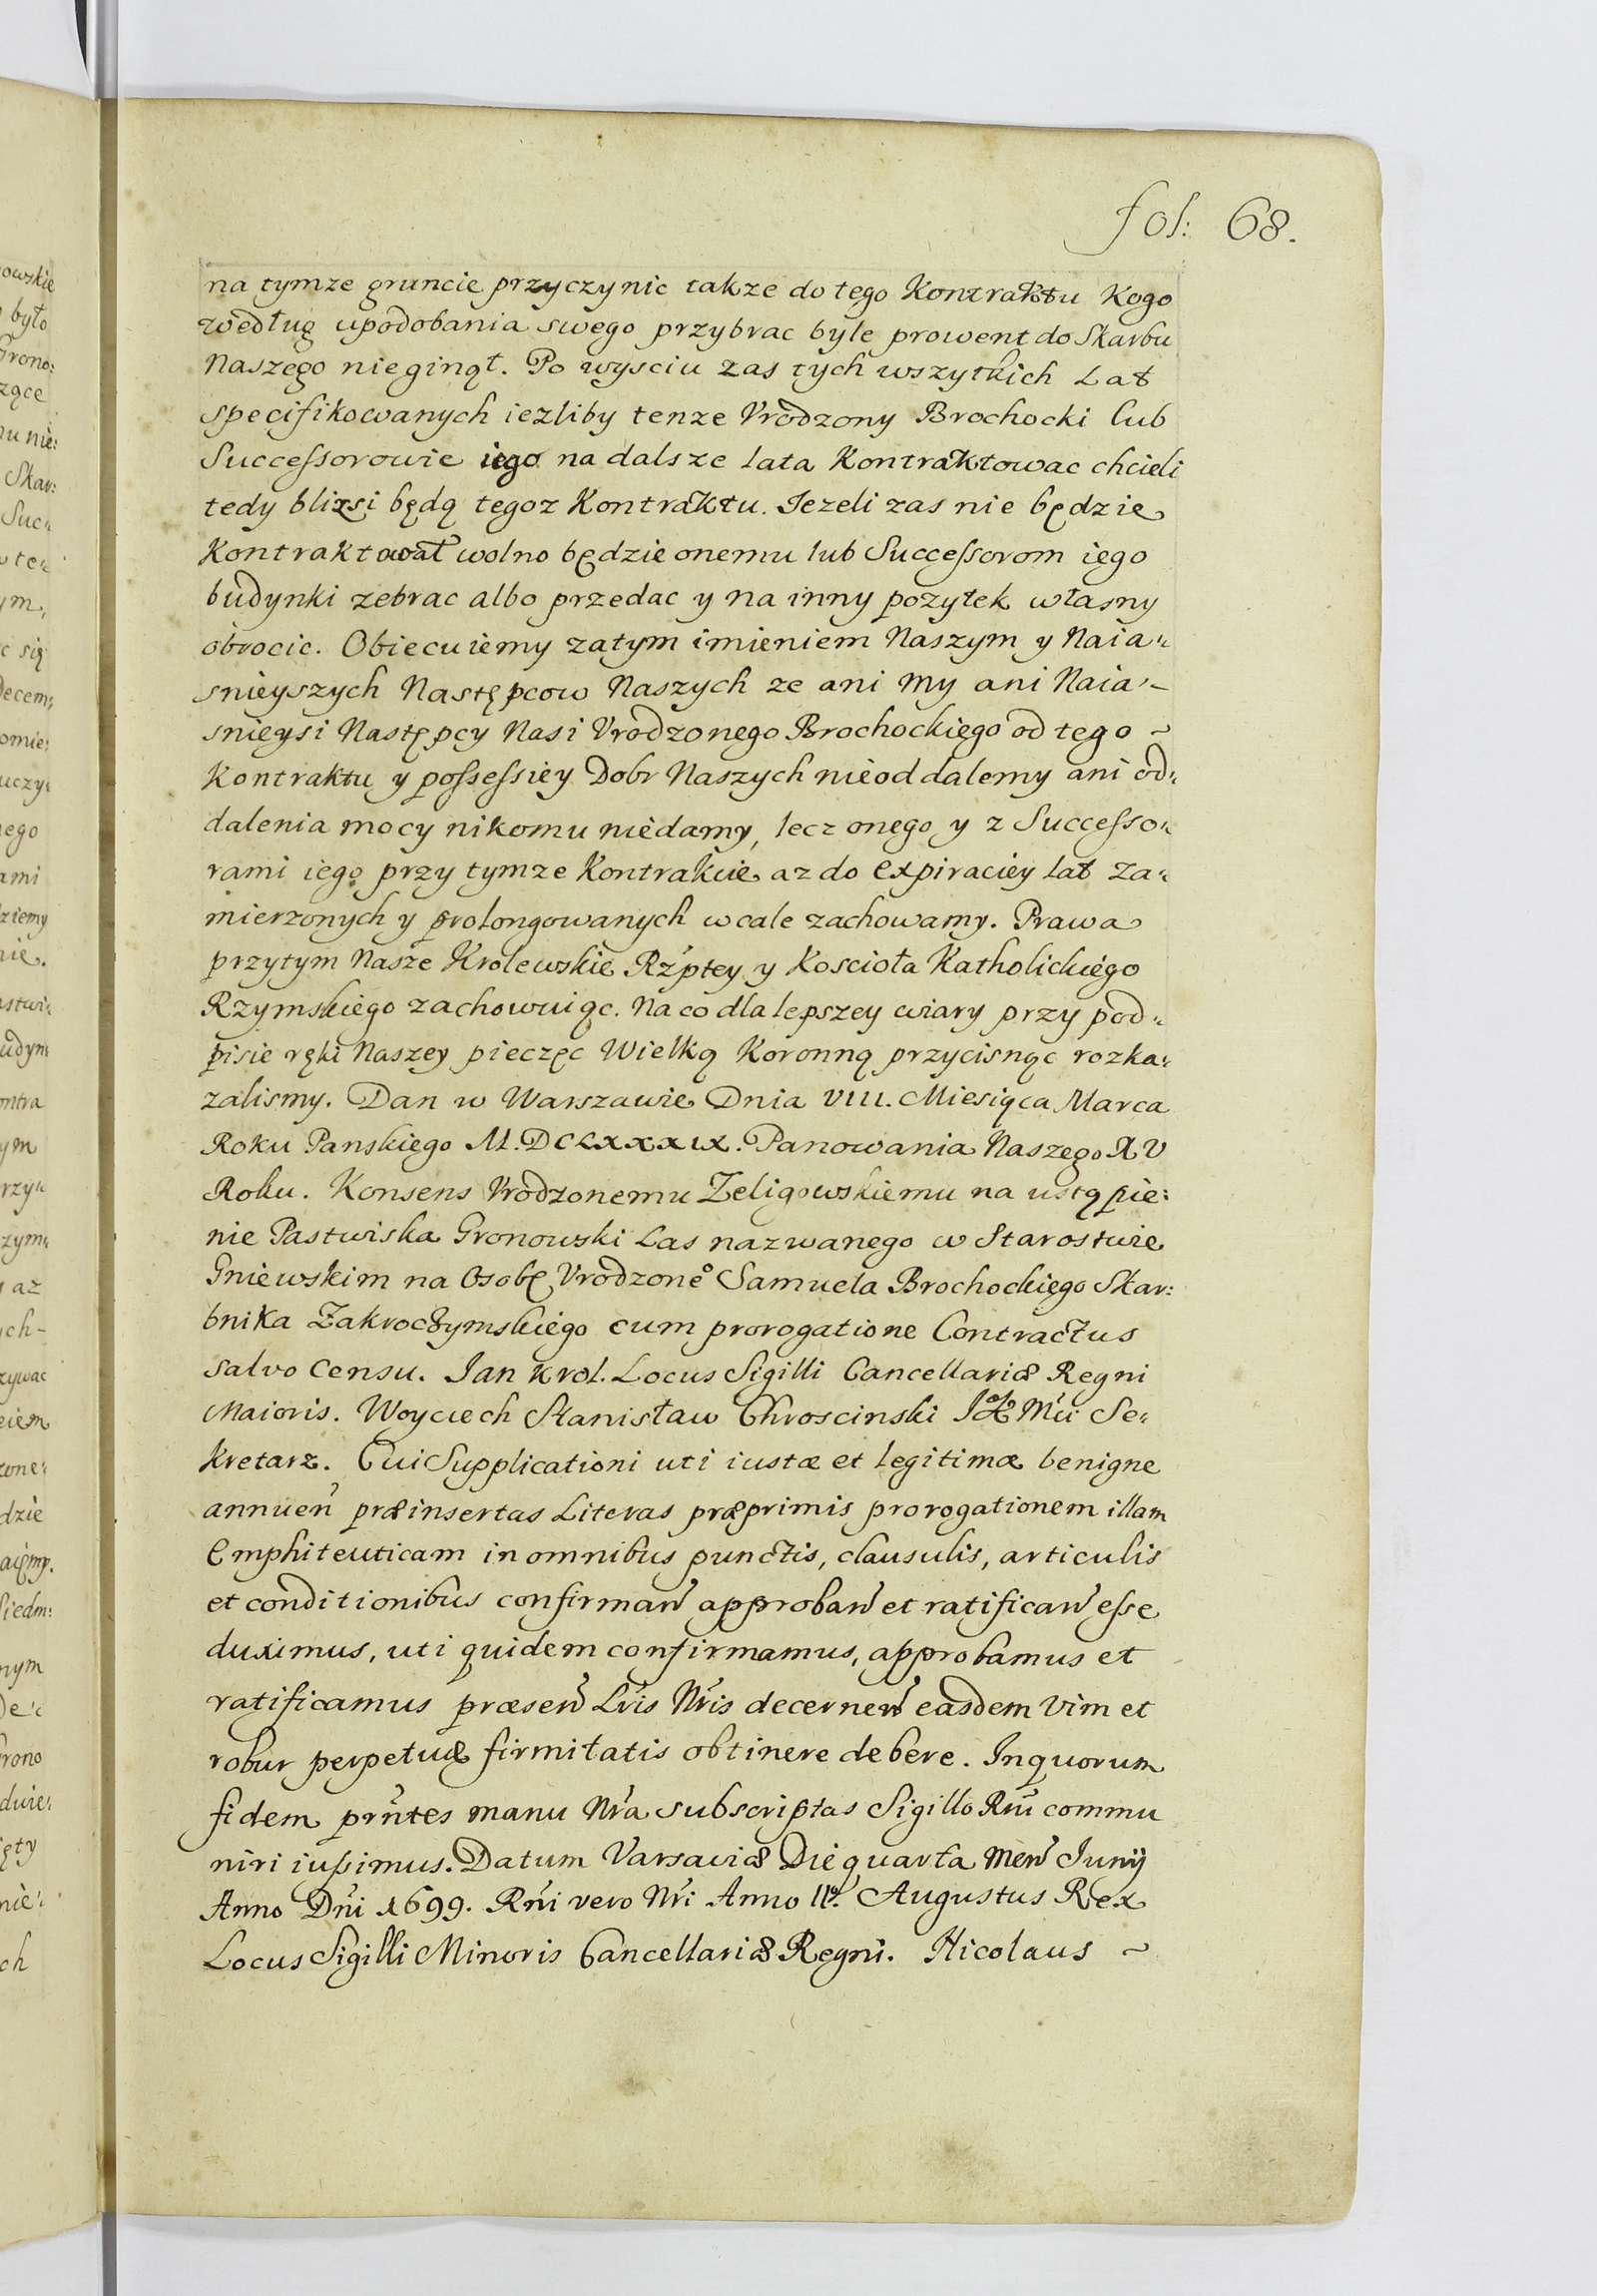 fol: 68.
na tymze gruncie przyczynic takze do tego Kontraktu Kogo
według upodobania swego przybrac byle prowent do Skarbu
Naszego nieginął. Po wysciu zas tych wszytkich Lat
specifikowanych iezliby tenze Vrodzony Brochocki lub
Successorowie iego na dalsze lata Kontraktowac chcieli
tedy blizsi będą tegoz Kontraktu. Iezeli zas nie będzie
Kontraktował wolno będzie onemu lub Successorom iego
budynki zebrac albo przedac y na inny pozytek własny
obrocic. Obiecuiemy zatym imieniem Naszym y Naia„
snieyszych Następcow Naszych ze ani My ani Naia„
snieysi Następcy Nasi Vrodzonego Brochockiego od tego ~
Kontraktu y possessiey Dobr Naszych nieoddalemy ani od„
dalenia mocy nikomu niedamy, lecz onego y z Successo„
rami iego przy tymze Kontrakcie az do expiraciey lat za„
mierzonych y prolongowanych wcale zachowamy. Prawa
przytym Nasze Krolewskie Rz'ptey y Koscioła Katholickiego
Rzymskiego zachowuiąc. Na co dla lepszey wiary przy pod„
pisie ręki Naszey pieczęc Wielką Koronną przycisnąc rozka„
zalismy. Dan w Warszawie Dnia VIII. Miesiąca Marca
Roku Panskiego M.DCLXXXIX. Panowania Naszego XV
Roku. Konsens Vrodzonemu Zeligowskiemu na ustąpie:
nie Pastwiska Gronowski Las nazwanego w Starostwie
Gniewskim na Osobę Vrodzone° Samuela Brochockiego Skar:
bnika Zakroczymskiego cum prorogatione Contractus
salvo Censu. Jan Krol. Locus Sigilli Cancellariæ Regni
Maioris. Woyciech Stanisław Chroscinski JK Mci Se„
kretarz. Cui Supplicationi uti iustæ et legitimæ benigne
annuen̄ præinsertas Literas præprimis prorogationem illam
Emphiteuticam in omnibus punctis, clausulis, articulis
et conditionibus confirman̄ approban̄ et ratifican̄ esse
duximus, uti quidem confirmamus, approbamus et
ratificamus præsen̄ Lris Nris decernen̄ easdem vim et
robur perpetuæ firmitatis obtinere debere. In quorum
fidem prntes manu Nra subscriptas Sigillo Rni commu
niri iussimus. Datum Varsaviæ Die quarta Men̄ Iunij
Anno Dni 1699. Rni vero Nri Anno II° Augustus Rex
Locus Sigilli Minoris Cancellariæ Regni. Nicolaus ~